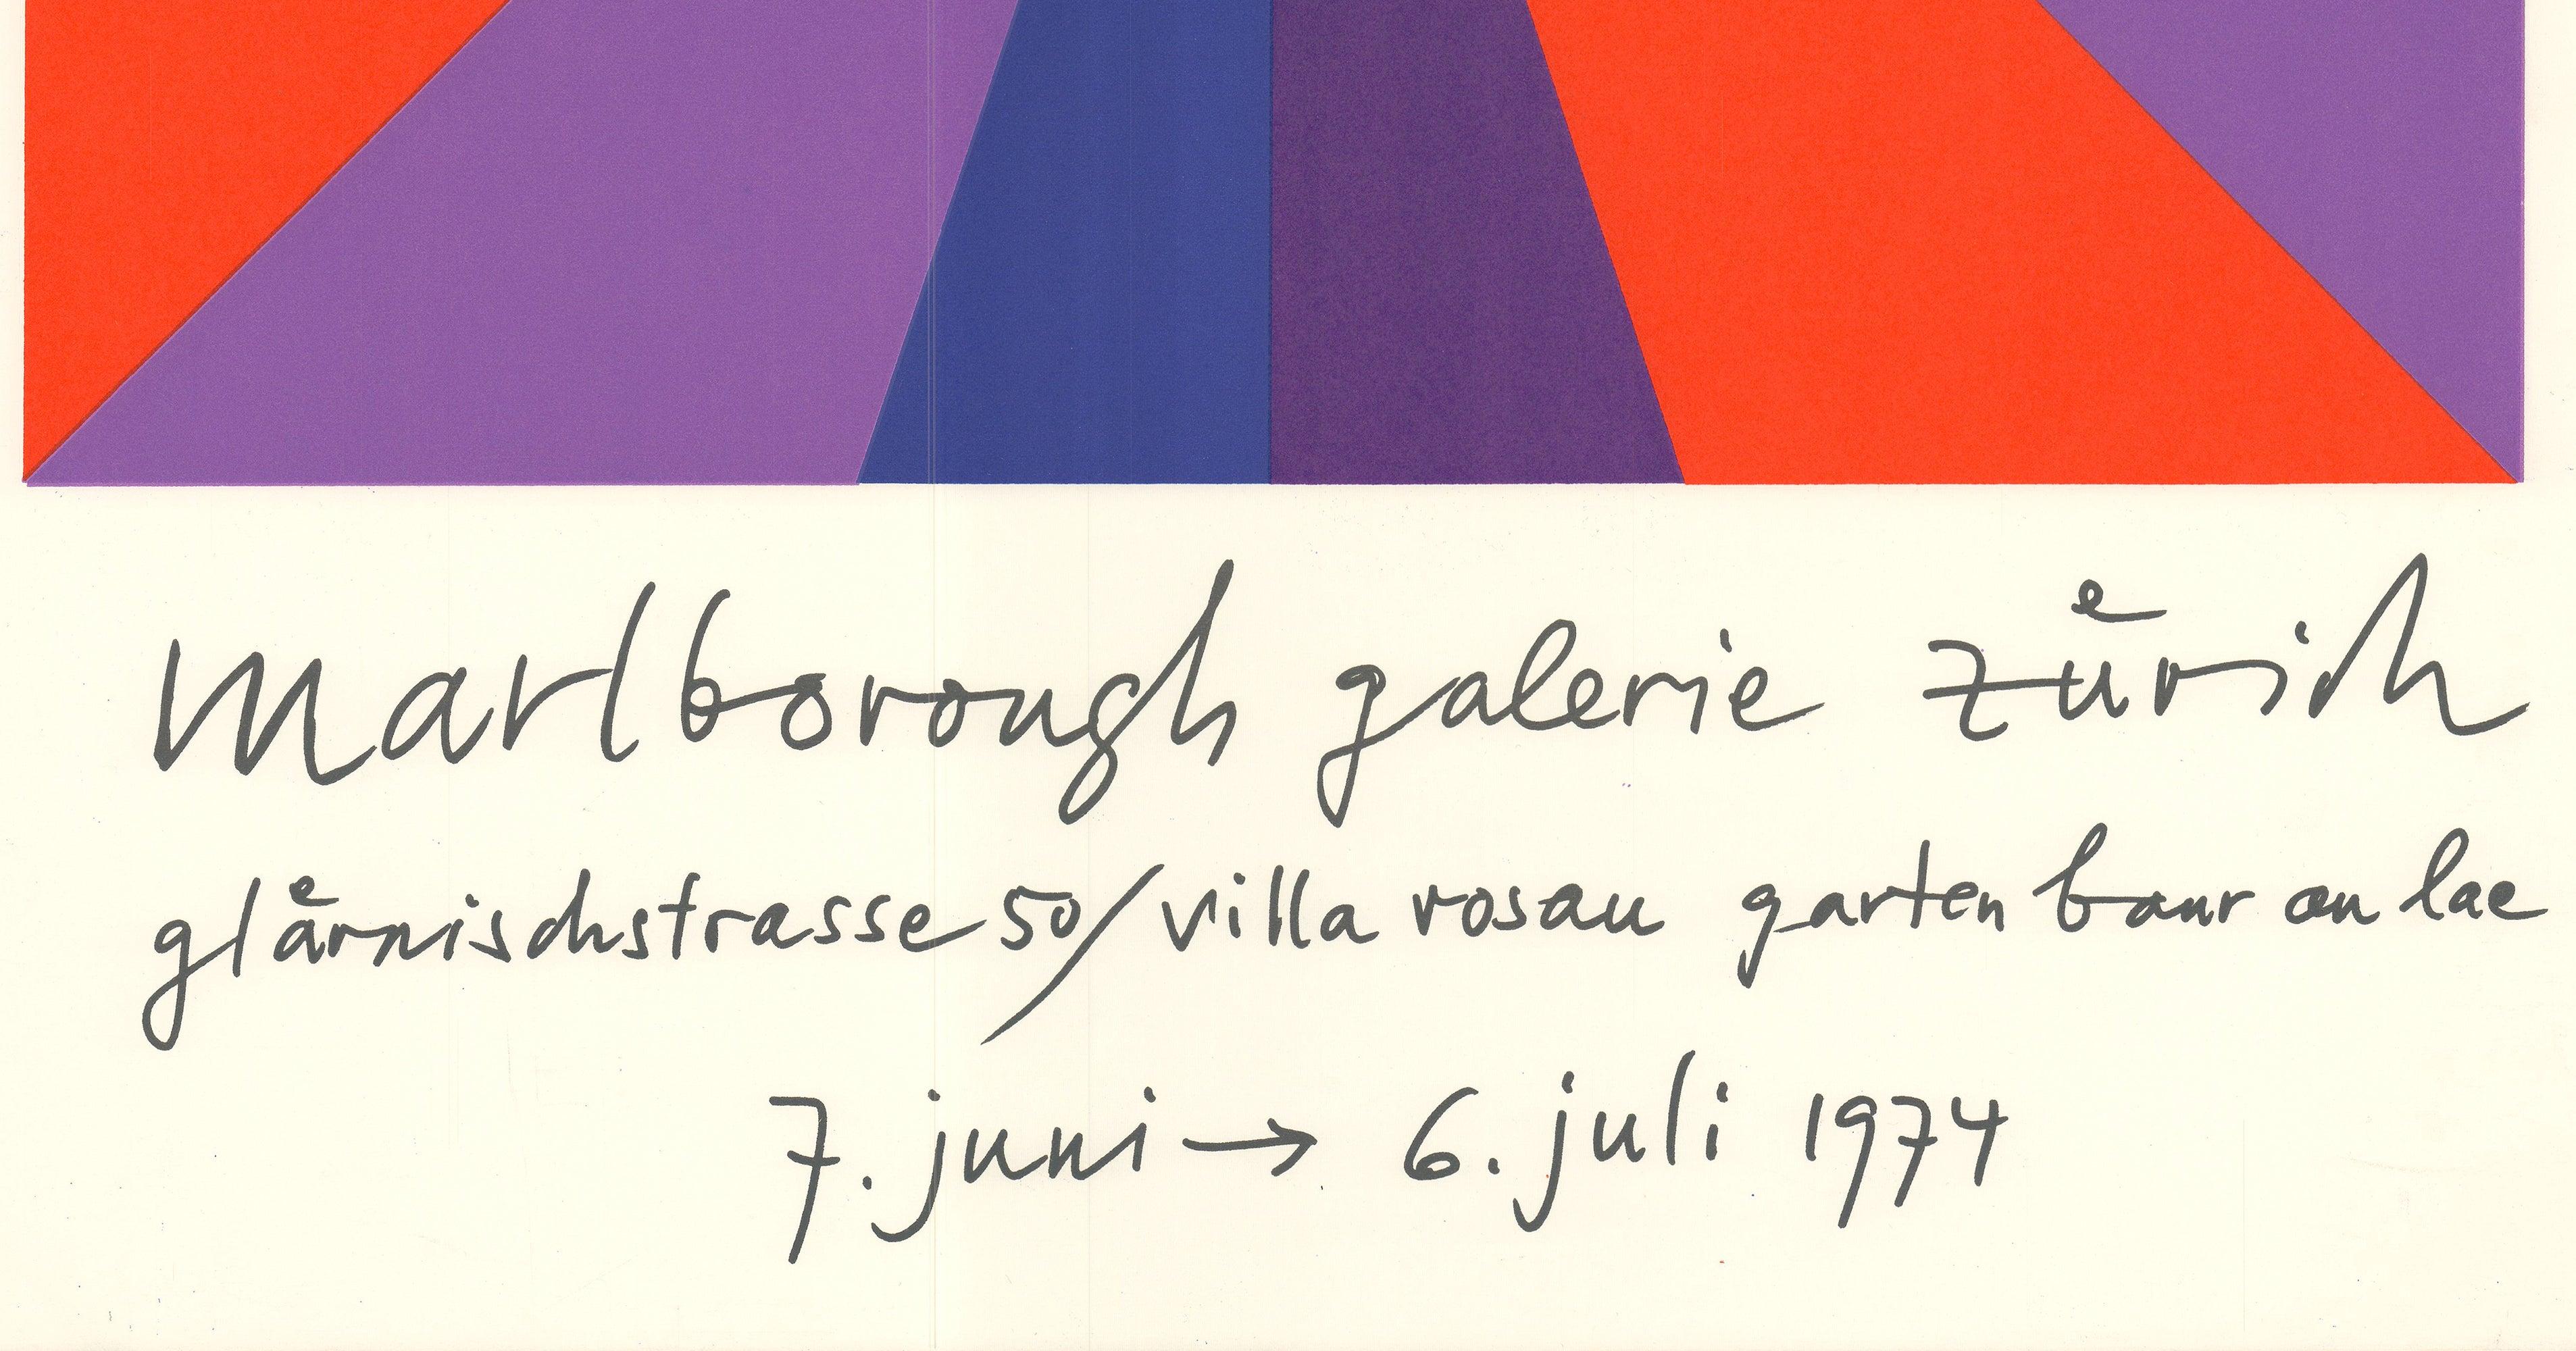 marlborough galerie zuͤrich
glaͤrnischstrasse 50/villa rosau garten baur au lac
7. juni → 6. juli 1974